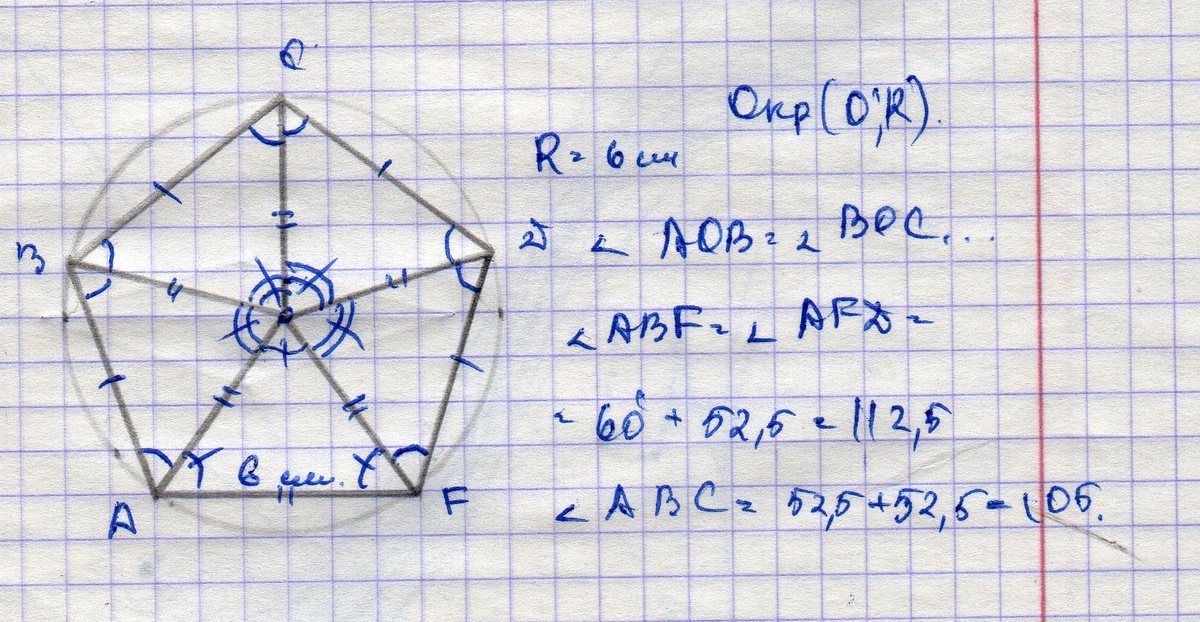 C
Окр(О;R).
R = 6 см
B
D
∠ AOB = ∠ BOC...
∠ ABF = ∠ AFD =
= 60° + 52,5 = 112,5
6 см.
A
F
∠ ABC = 52,5 + 52,5 = 105.